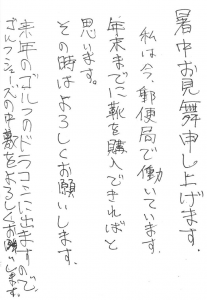 暑中お見舞申し上げます。
私は今、郵便局で働いています。
年末までに靴を購入できればと
思います。
その時はよろしくお願いします。
来年のゴルフのドラコンに出ますので
ゴルフシューズの中敷をよろしくお願いします。